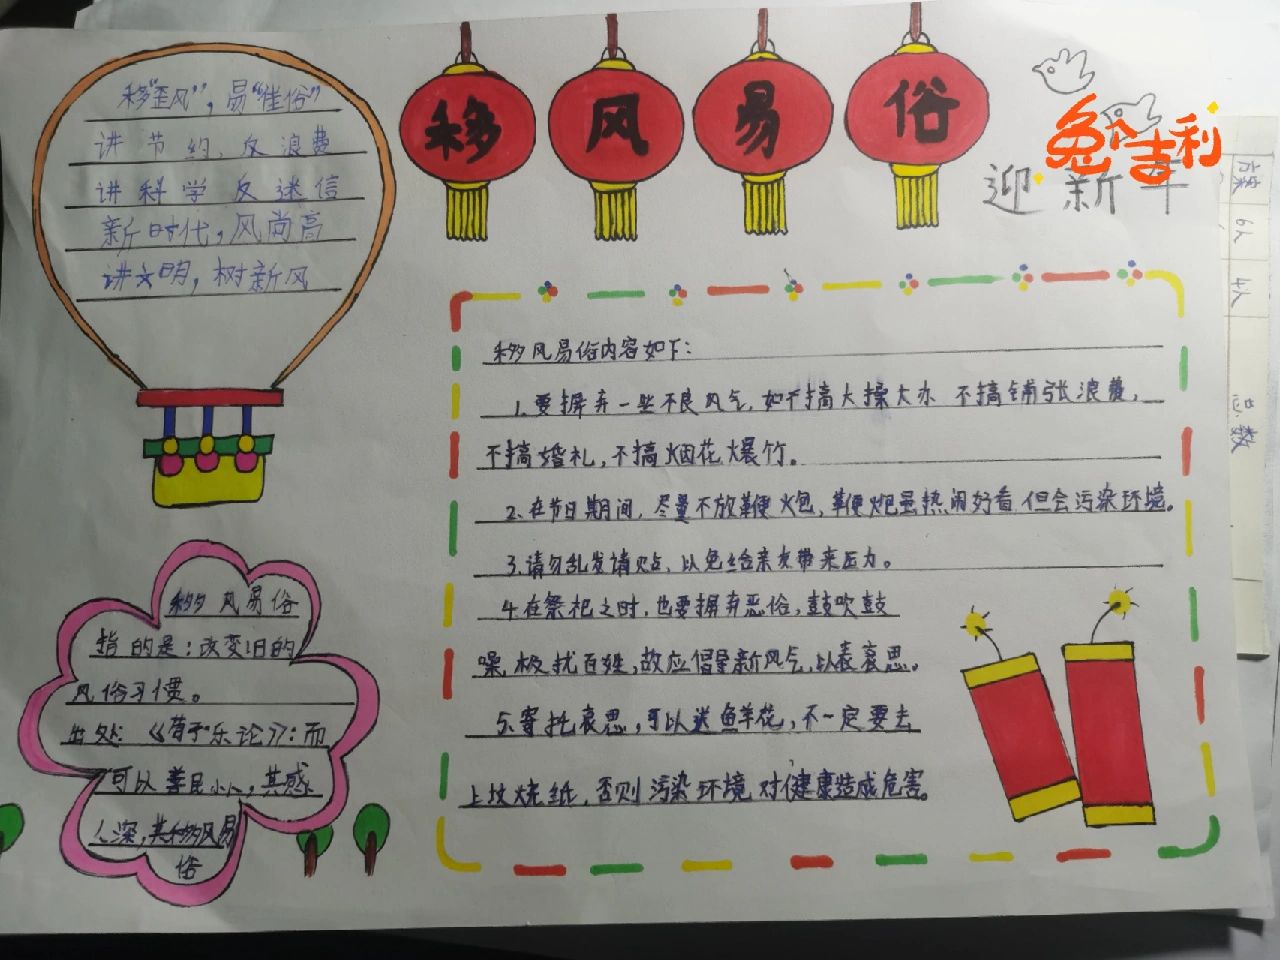 移风易俗
兔个吉利
迎新年
移"歪风"，易"佳俗"
讲节约，反浪费
讲科学 反迷信
新时代，风尚高
讲文明，树新风
移风易俗内容如下：
1.要摒弃一些不良风气，如不搞大操大办 不搞铺张浪费，
不搞婚礼，不搞烟花爆竹。
2.在节日期间，尽量不放鞭火包，鞭炮虽热闹好看 但会污染环境。
3.请勿乱发请，以免给亲友带来压力。
4.在祭祀之时，也要摒弃恶俗，鼓吹鼓
噪，极扰百姓，故应倡量新风气，以表哀思。
5.寄托哀思，可以送鱼羊花，不一定要去
上坟烧纸，否则污染环境 对健康造成危害。
移风易俗
指的是：改变旧的
风俗习惯。
出处：《荀子·乐论》：而
可以善民心，其感
人深，其移风易
俗
六案 6人 4人
总数